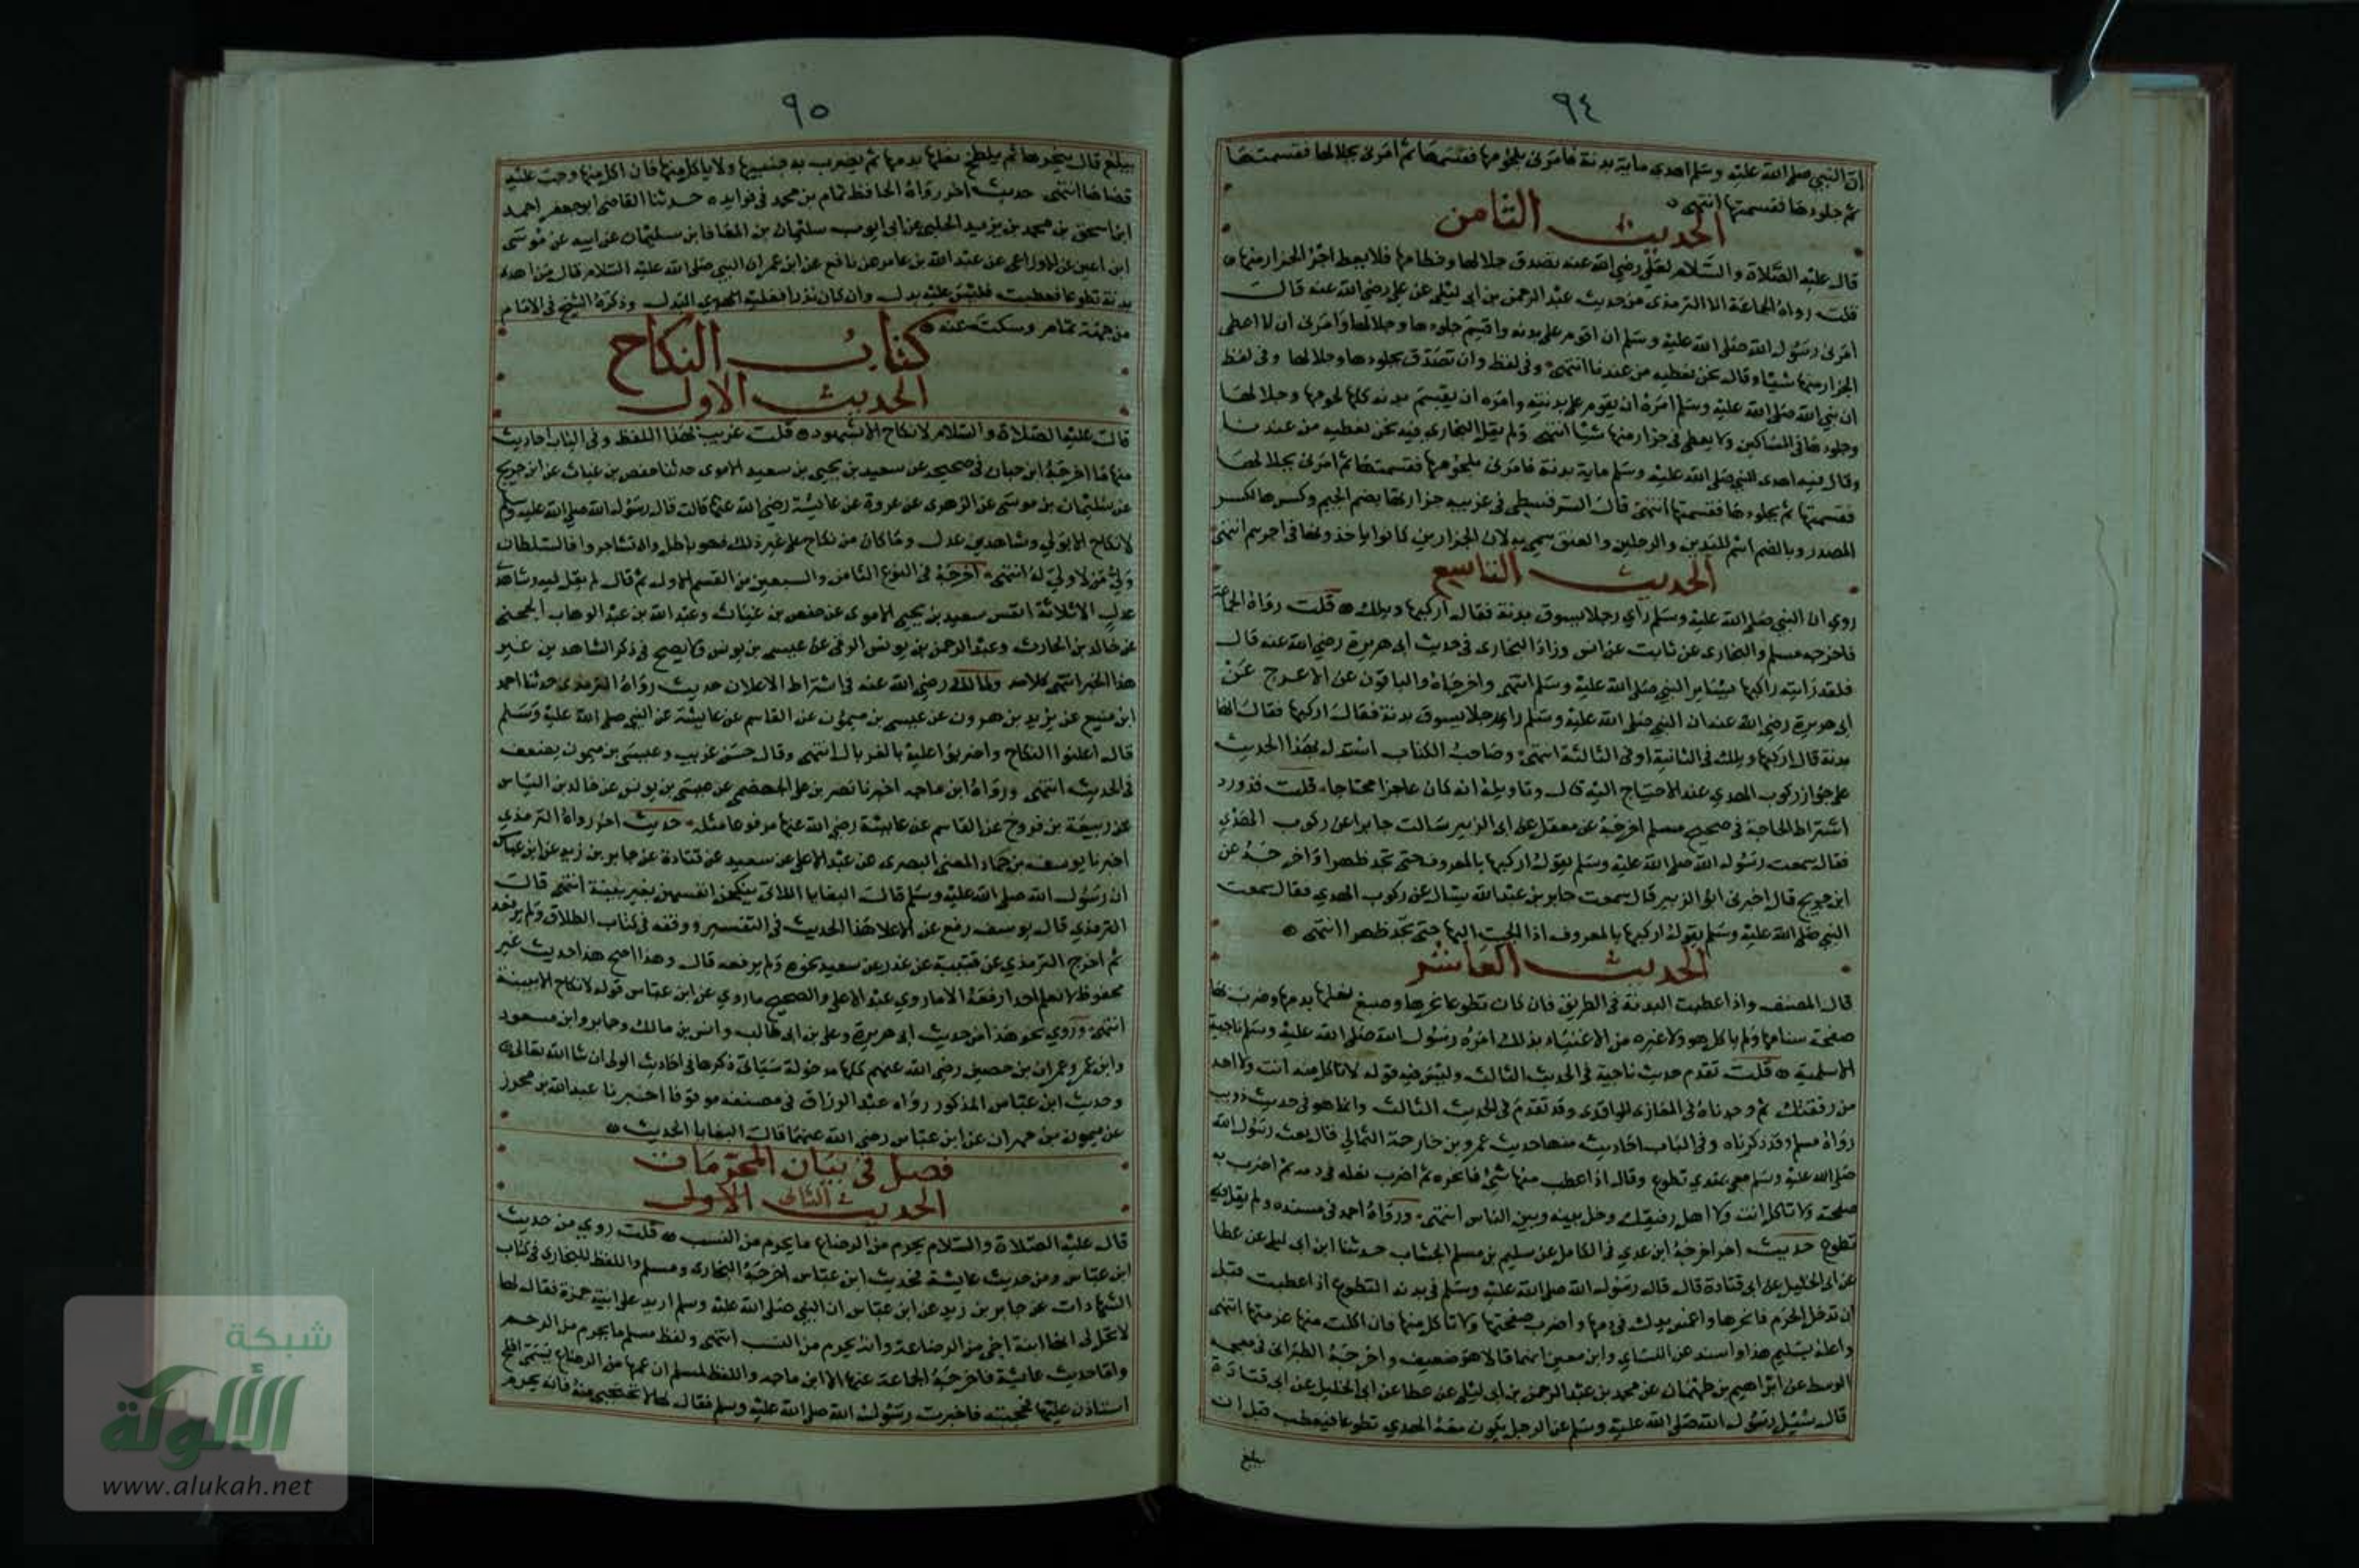 ٩٤
ان النبي صلى الله عليه وسلم اهدى ماية بدنة فامرنى بلحومها فقسمتها ثم امرنى بجلالها فقسمتها
ثم جلودها فقسمتها انتهى
الحديث الثامن
قال عليه الصلاة والسلام لعلي رضي الله عنه تصدق بجلالها وخطامها فلا يعط اجر الجزار منها
قلت رواه الجماعة الا الترمذى من حديث عبد الرحمن بن ابي ليلى عن علي رضي الله عنه قال
امرنى رسول الله صلى الله عليه وسلم ان اقوم على بدنه واقسم جلودها وجلالها وامرنى ان لا اعطى
الجزار منها شيئا وقال نحن نعطيه من عندنا انتهى وفي لفظ وان تصدق بجلودها وجلالها وفى لفظ
ان نبي الله صلى الله عليه وسلم امره ان يقوم على بدنته وامره ان يقسم بدنه كلها لحومها وجلالها
وجلودها في المساكين ولا يعطى في جزارتها شيئا انتهى ولم يقل البخارى فيه نحن نعطيه من عندنا
وقال فيه اهدى النبي صلى الله عليه وسلم ماية بدنة فامرنى بلحومها فقسمتها ثم امرنى بجلالها
فقسمتها ثم بجلودها فقسمتها انتهى قال السرقسطي في غريبه جزارتها بضم الجيم وكسرها فالكسر
المصدر وبالضم اسم لليدين والرجلين والعنق سمي به لان الجزارين كانوا ياخذونها في اجرتهم انتهى
الحديث التاسع
روي ان النبي صلى الله عليه وسلم راى رجلا يسوق بدنة فقال اركبها ويلك قلت رواه الجماعة
فاخرجه مسلم والبخارى عن ثابت عن انس وزاد البخارى في حديث ابي هريرة رضي الله عنه قال
فلقد رايته راكبها يساير النبي صلى الله عليه وسلم انتهى واخرجاه والباقون عن الاعرج عن
ابي هريرة رضي الله عنه ان النبي صلى الله عليه وسلم راى رجلا يسوق بدنة فقال اركبها فقال انها
بدنة قال اركبها ويلك في الثانية او في الثالثة انتهى وصاحب الكتاب استدل بهذا الحديث
على جواز ركوب الهدي عند الاحتياج اليه قال وتاويله انه كان عاجزا محتاجا قلت قد ورد
اشتراط الحاجة في صحيح مسلم اخرجه عن معقل عن ابي الزبير سالت جابرا عن ركوب الهدي
فقال سمعت رسول الله صلى الله عليه وسلم يقول اركبها بالمعروف حتى تجد ظهرا واخرجه عن
ابن جريج قال اخبرنى ابو الزبير قال سمعت جابر بن عبد الله يسال عن ركوب الهدي فقال سمعت
النبي صلى الله عليه وسلم يقول اركبها بالمعروف اذا الجيت اليها حتى تجد ظهرا انتهى
الحديث العاشر
قال المصنف واذا عطبت البدنة في الطريق فان كان تطوعا نحرها وصبغ نعلها بدمها وضرب بها
صفحة سنامها ولم ياكل هو ولا غيره من الاغنياء بذلك امر رسول الله صلى الله عليه وسلم ناجية
الاسلمية قلت تقدم حديث ناجية في الحديث الثالث وليس فيه قوله لا تاكل منه انت ولا احد
من رفقتك ثم وجدناه في المغازى للواقدى وقد تقدم في الحديث الثالث وانما هو في حديث ذويب
رواه مسلم وقد ذكرناه وفي الباب احاديث منها حديث عمرو بن خارجة الثمالي قال بعث رسول الله
صلى الله عليه وسلم معي بهدي تطوع وقال اذا عطب منها شئ فانحره ثم اضرب نعله في دمه ثم اضرب به
صفحته ولا تاكل انت ولا اهل رفقتك وخل بينه وبين الناس انتهى ورواه احمد في مسنده ولم يقل فيه
تطوع حديث اخر اخرجه ابن عدي في الكامل عن سليم بن مسلم الخشاب حدثنا ابن ابي ليلى عن عطا
عن ابي الخليل عن ابي قتادة قال قال رسول الله صلى الله عليه وسلم في بدنة التطوع اذا عطبت قبل
ان تدخل الحرم فانحرها واغمس يدك في دمها واضرب صفحتها ولا تاكل منها فان اكلت منها غرمتها انتهى
واعله بسليم هذا واسند عن النساي وابن معين انهما قالا هو ضعيف واخرجه الطبرانى في معجمه
الوسط عن ابراهيم بن طهمان عن محمد بن عبد الرحمن بن ابي ليلى عن عطا عن ابي الخليل عن ابي قتادة
قال سئل رسول الله صلى الله عليه وسلم عن الرجل يكون معه الهدي تطوعا فيعطب قبل ان
يبلغ
٩٥
يبلغ قال ينحرها ثم يلطخ نعلها بدمها ثم يضرب به جنبيها ولا ياكل منها فان اكل منها وجب عليه
قضاها انتهى حديث اخر رواه الحافظ تمام بن محمد في فوايده حدثنا القاضى ابو جعفر احمد
ابن اسحق بن محمد بن يزيد الحلبي عن ابي ايوب سليمان بن المعافا بن سليمان عن ابيه عن موسى
ابن اعين عن الاوزاعى عن عبد الله بن عامر عن نافع عن ابن عمر ان النبي صلى الله عليه السلام قال من اهدى
بدنة تطوعا فعطبت فليس عليه بدل وان كان نذرا فعليه البدل وذكره الشيخ في الامام
من جهة تمام وسكت عنه
كتاب النكاح
الحديث الاول
قال عليه الصلاة والسلام لا نكاح الا بشهود قلت غريب بهذا اللفظ وفي الباب احاديث
منها ما اخرجه ابن حبان في صحيحه عن سعيد بن يحيى بن سعيد الاموى حدثنا حفص بن غياث عن ابن جريج
عن سليمان بن موسى عن الزهرى عن عروة عن عايشة رضي الله عنها قالت قال رسول الله صلى الله عليه وسلم
لا نكاح الا بولي وشاهدي عدل وما كان من نكاح على غير ذلك فهو باطل وان تشاجروا فالسلطان
ولي من لا ولي له انتهى اخرجه في النوع الثامن والسبعين من القسم الاول ثم قال لم يقل فيه وشاهدى
عدل الا ثلاثة انفس سعيد بن يحيى الاموى عن حفص بن غياث وعبد الله بن عبد الوهاب الجمحي
عن خالد بن الحارث وعبد الرحمن بن يونس الرقى عن عيسى بن يونس ولا يصح في ذكر الشاهدين غير
هذا الخبر انتهى كلامه ولمالك رضي الله عنه في اشتراط الاعلان حديث رواه الترمذى حدثنا احمد
ابن منيع عن يزيد بن هرون عن عيسى بن ميمون عن القاسم عن عايشة عن النبي صلى الله عليه وسلم
قال اعلنوا النكاح واضربوا عليه بالغربال انتهى وقال حسن غريب وعيسى بن ميمون يضعف
في الحديث انتهى ورواه ابن ماجه اخبرنا نصر بن علي الجهضمي عن عيسى بن يونس عن خالد بن الياس
عن ربيعة بن فروخ عن القاسم عن عايشة رضي الله عنها مرفوعا مثله حديث اخر رواه الترمذي
اخبرنا يوسف بن حماد المعني البصرى عن عبد الاعلى عن سعيد عن قتادة عن جابر بن زيد عن ابن عباس
ان رسول الله صلى الله عليه وسلم قال البغايا اللاتى ينكحن انفسهن بغير بينة انتهى قال
الترمذي قال يوسف رفع عبد الاعلا هذا الحديث في التفسير ووقفه في كتاب الطلاق ولم يرفعه
ثم اخرج الترمذي عن قتيبة عن غندر عن سعيد نحوه ولم يرفعه قال وهذا اصح هذا حديث غير
محفوظ لا نعلم احدا رفعه الا ما روي عبد الاعلى والصحيح ما روي عن ابن عباس قوله لا نكاح الا ببينة
انتهى وروي نحو هذا من حديث ابي هريرة وعلي بن ابي طالب وانس بن مالك وجابر وابن مسعود
وابن عمر وعمران بن حصين رضي الله عنهم كلها مدخولة سياتى ذكرها في احاديث الولى ان شا الله تعالى
وحديث ابن عباس المذكور رواه عبد الرزاق في مصنفه موقوفا اخبرنا عبد الله بن محرر
عن ميمون بن مهران عن ابن عباس رضي الله عنهما قال البغايا الحديث
فصل في بيان المحرمات
الحديث الثانى الاول
قال عليه الصلاة والسلام يحرم من الرضاع ما يحرم من النسب قلت روي من حديث
ابن عباس ومن حديث عايشة فحديث ابن عباس اخرجه البخارى ومسلم واللفظ للبخارى في كتاب
الشهادات عن جابر بن زيد عن ابن عباس ان النبي صلى الله عليه وسلم اريد على ابنة حمزة فقال انها
لا تحل لى انها ابنة اخي من الرضاعة وانه يحرم من النسب انتهى ولفظ مسلم ما يحرم من الرحم
واما حديث عايشة فاخرجه الجماعة عنها الا ابن ماجه واللفظ لمسلم ان عمها من الرضاع يسمى افلح
استاذن عليها فحجبته فاخبرت رسول الله صلى الله عليه وسلم فقال لها لا تحتجبي منه فانه يحرم
شبكة
الألوكة
www.alukah.net